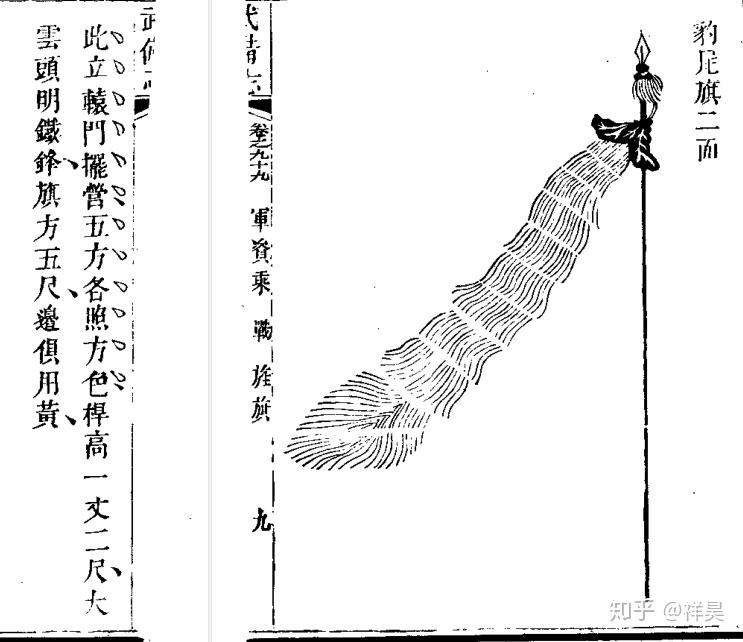 豹尾旗二面
武備志
卷之九十九
軍資乘
戰
旌旗
九
武備志
此立轅門擺營五方各照方色桿高一丈二尺大
雲頭明鐵鋒旗方五尺邊俱用黃
知乎 @祥昊